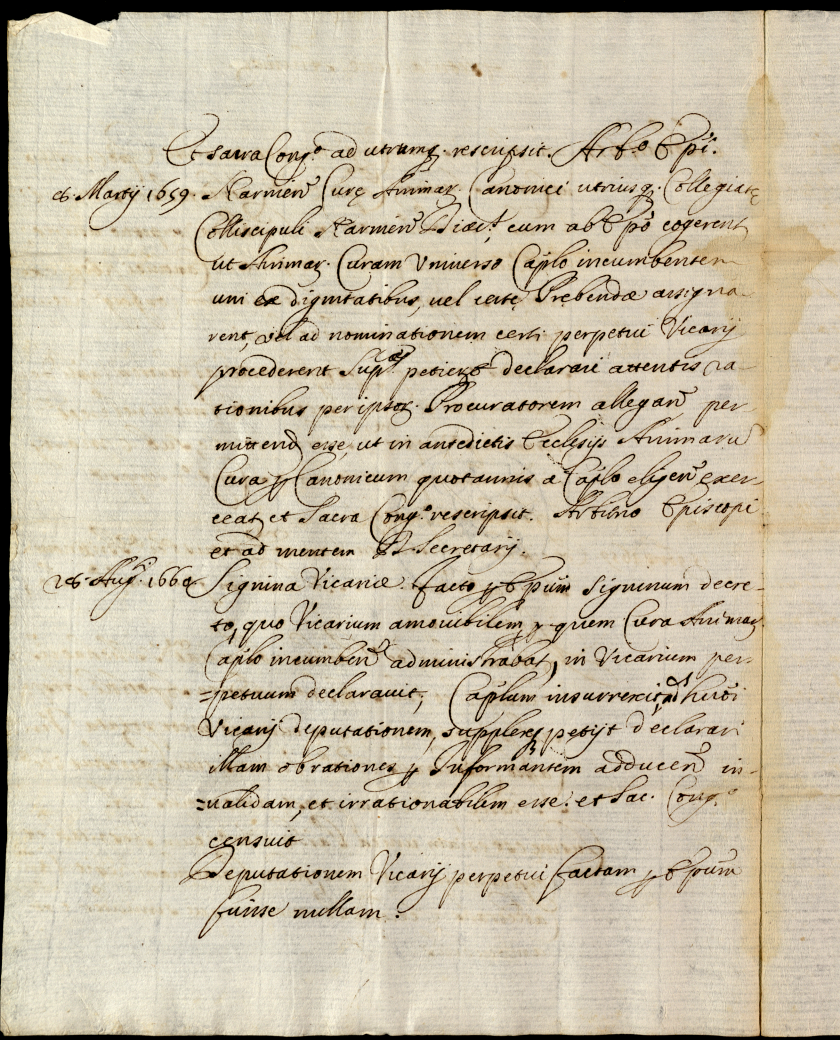 Et sacra Congo. ad utramq. rescripsit. Arbo. Epi.
26. Martij 1659. Narnien Curę Animar. Canonici utriusq. Collegiatę
Collescipuli Narnien Diæc. cum ab Epo cogerent
ut Animar. Curam Universo Caplo incumbentem
uni ex dignitatibus, vel certę Prębendæ assigna
rent, vel ad nominationem certi perpetui Vicarij
procederent petiere declarari attentis ra
tionibus per ipsor. Procuratorem allegan per
mittend esse, ut in antedictis Ecclesijs Animaru
Cura p Canonicum quotannis a Caplo eligen exer
ceat, et Sacra Congo. rescripsit. Arbitrio Episcopi
et ad mentem D. Secretarij.
Aug. 166 Signina Vicariæ. facto p Epum Signinum decre-
to, quo Vicarium amovibilem, p quem Cura Animar.
Caplo incumben administrabat, in Vicarium per-
=petuum declaravit, Caplum insurrexit, ad hujoi
Vicarij deputationem, supplex petijt declarari
illam ob rationes p Informantem adducen in-
=validam, et irrationabilem esse: et Sac. Congo.
censuit
Deputationem Vicarij perpetui factam p Epum
fuisse nullam.